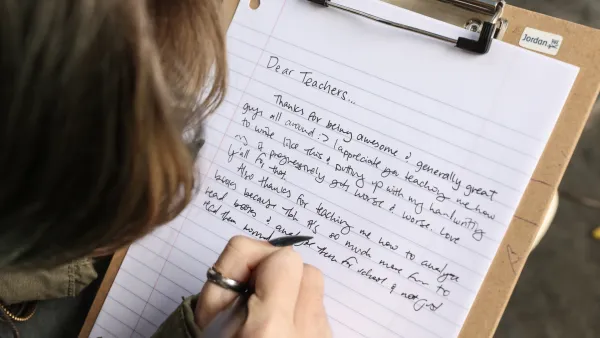 Jordan
Dear Teachers...
Thanks for being awesome & generally great
guys all around :) I appreciate you teaching me how
to write like this & putting up with my handwriting
as it progressively gets worse & worse. Love
y'all for that.
Also thanks for teaching me how to analyze
books because tbh it's so much more fun to
read books & analyze them for school & not just
read them normally